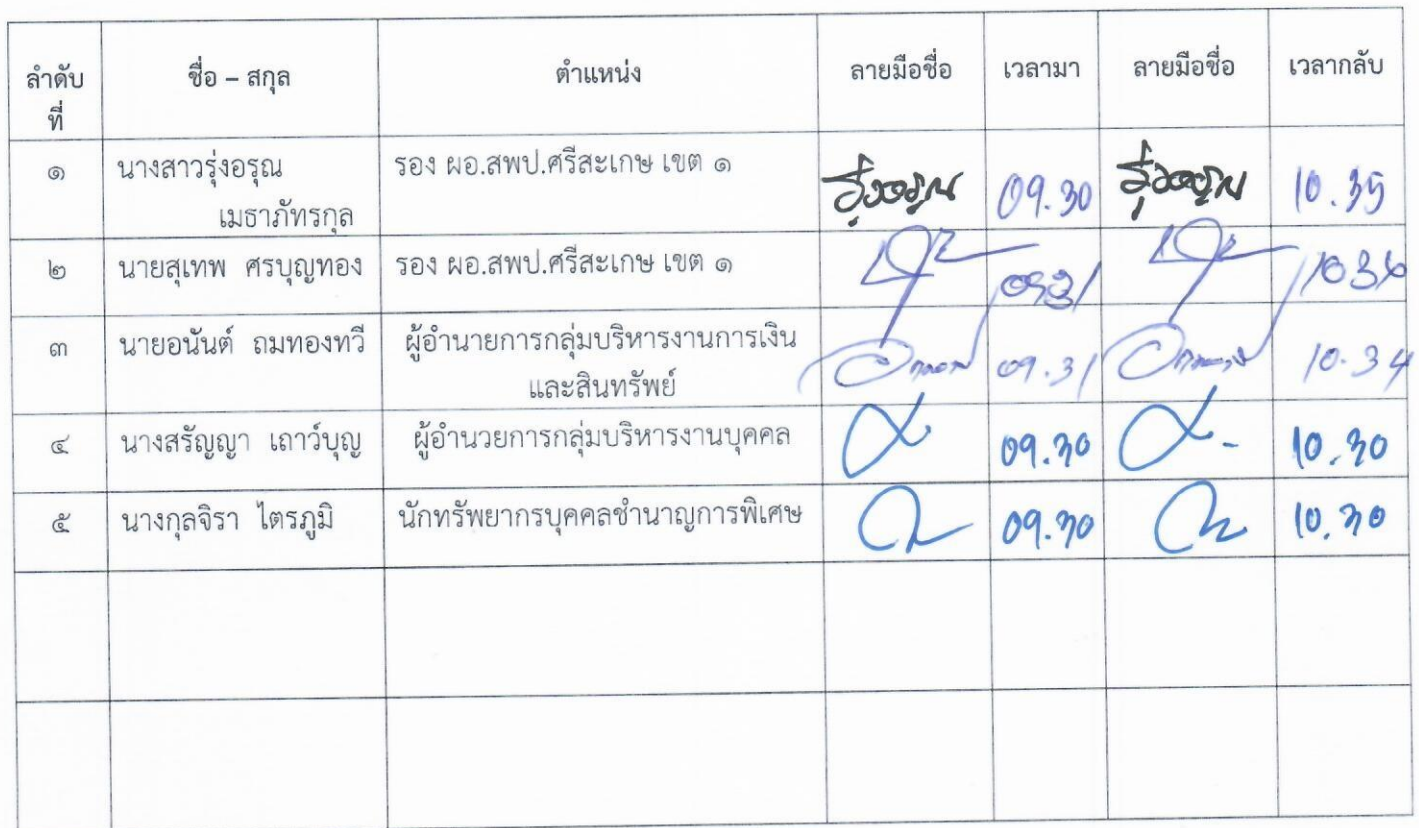 ลำดับ ชื่อ – สกุล ตำแหน่ง ลายมือชื่อ เวลามา ลายมือชื่อ เวลากลับ
ที่
๑ นางสาวรุ่งอรุณ รอง ผอ.สพป.ศรีสะเกษ เขต ๑ รุ่งอรุณ 09.30 รุ่งอรุณ 10.35
เมธาภัทรกุล
๒ นายสุเทพ ศรบุญทอง รอง ผอ.สพป.ศรีสะเกษ เขต ๑ 0931 1036
๓ นายอนันต์ ถมทองทวี ผู้อำนายการกลุ่มบริหารงานการเงิน 09.31 10.34
และสินทรัพย์
๔ นางสรัญญา เถาว์บุญ ผู้อำนวยการกลุ่มบริหารงานบุคคล 09.30 10.30
๕ นางกุลจิรา ไตรภูมิ นักทรัพยากรบุคคลชำนาญการพิเศษ 09.30 10.30